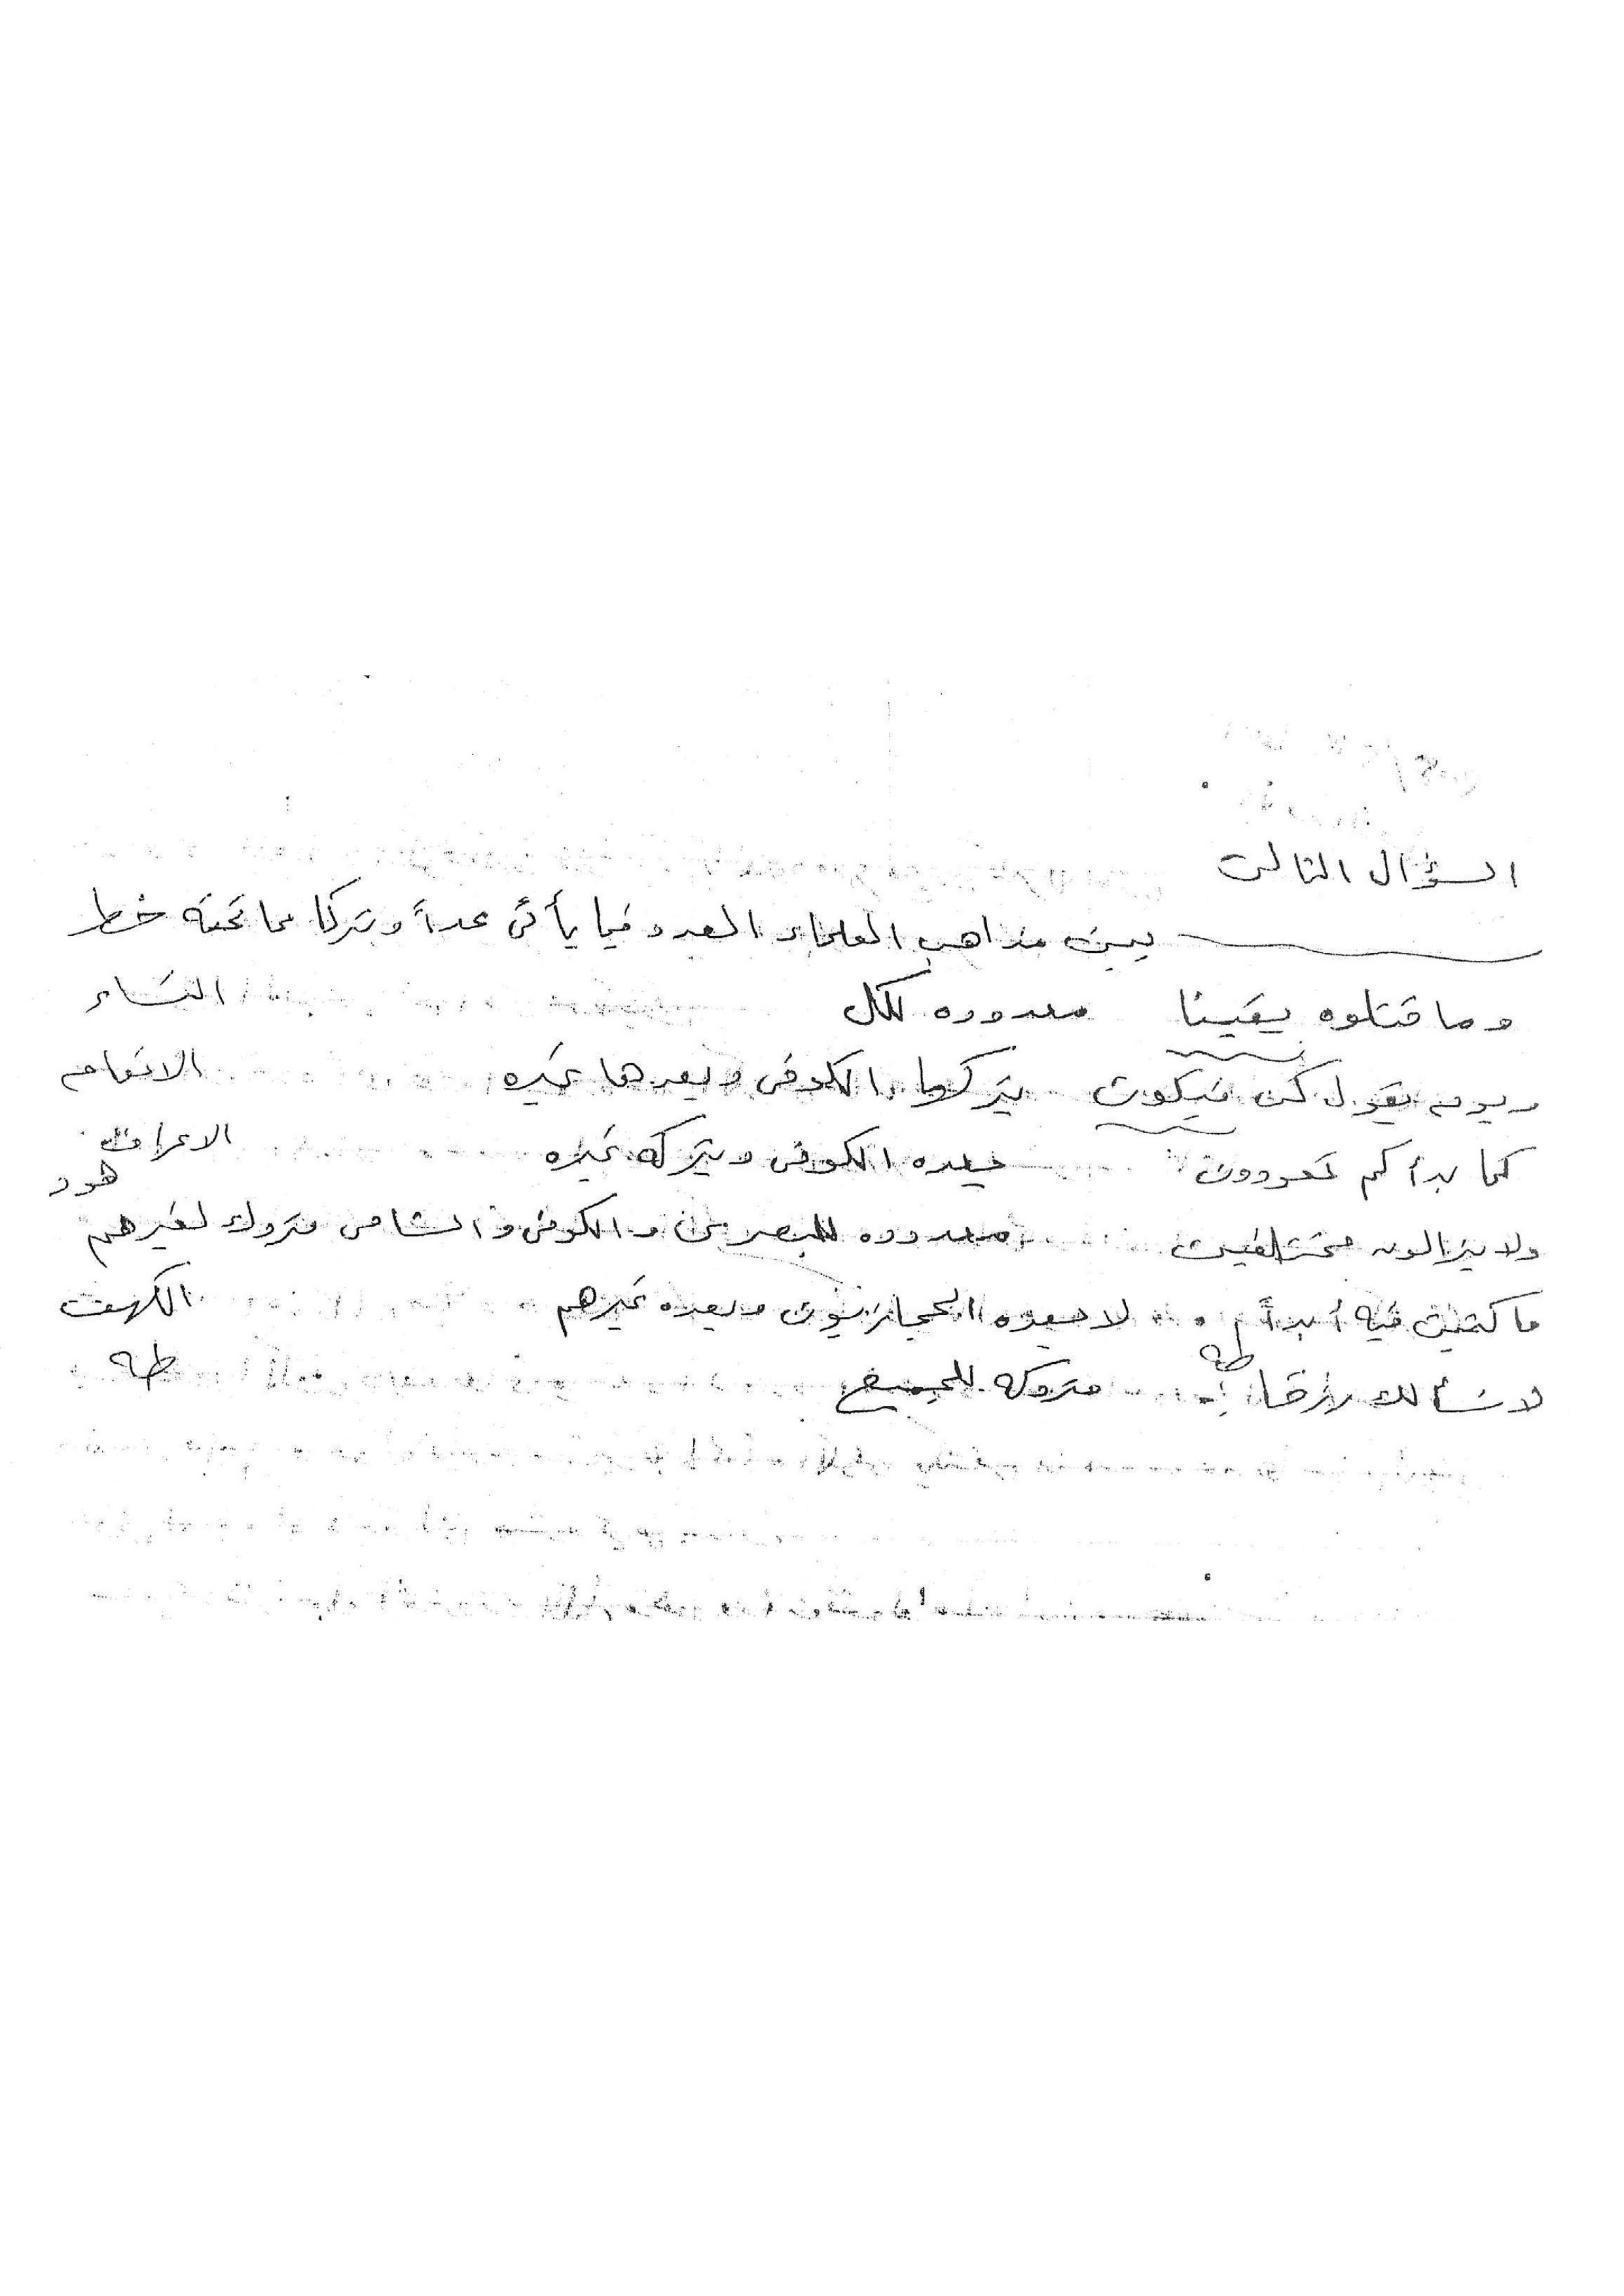 السؤال الثالث
بين مذاهب العلماء العدد فيما يأتى عداً وتركا مما تحته خط
وما قتلوه يقينا معدوده للكل النساء
ويوم يقول كن فيكون يتركها الكوفى ويعدها غيره الانعام
كما بدأكم تعودون يعده الكوفى ويتركه غيره الاعراف
هود
ولا يزالون مختلفين معدوده للبصرى والكوفى والشامى متروك لغيرهم
ماكثين فيه أبداً لا يعده الحجازيون ويعده غيرهم الكهف
طه
لا نسألك رزقا متروكه للجميع طه